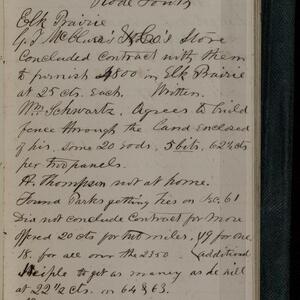 Rode South
Elk Prairie
G. T. McClure's & Co's Store
Concluded contract with them
to furnish 4800 in Elk Prairie
at 25 cts. Each. Written.
Wm Schwartz, Agrees to build
fence through the land enclosed
of his. some 20 rods, 5 bits, 62½ cts
per two panels.
A. Thompson not at home.
Found Parks getting ties on Sec. 61
Did not conclude Contract for more
offered 20 cts for miles, 49 for one
18. for all over the 2350 additional
to get as many as he will
at 22½ cts. on 64 & 63.